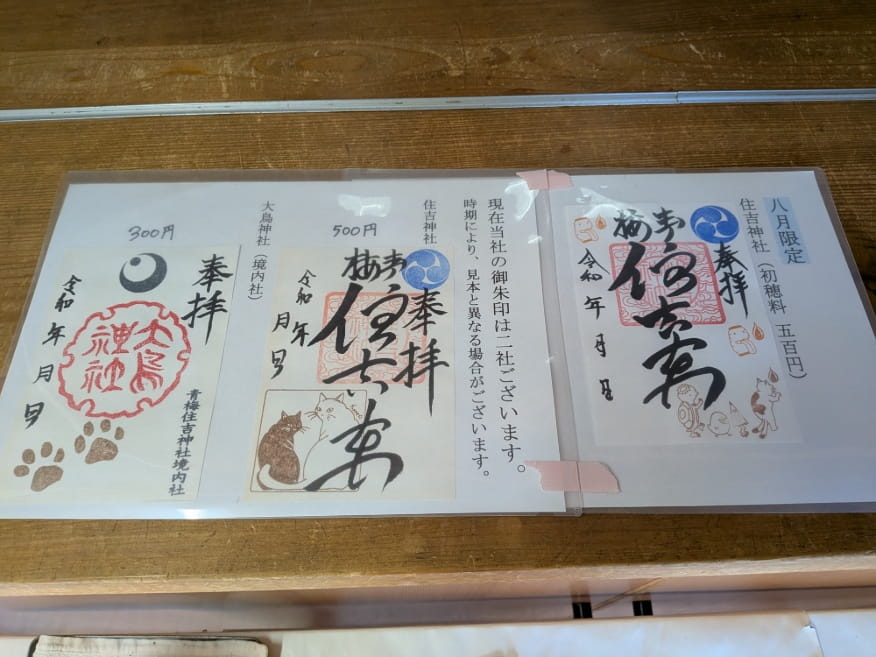 八月限定
住吉神社（初穂料 五百円）
奉拝
青梅
住吉
令和 年 月 日
現在当社の御朱印は二社ございます。
時期により、見本と異なる場合がございます。
住吉神社
500円
奉拝
青梅
住吉
令和 年 月 日
大鳥神社（境内社）
300円
奉拝
大鳥
神社
青梅住吉神社境内社
令和 年 月 日